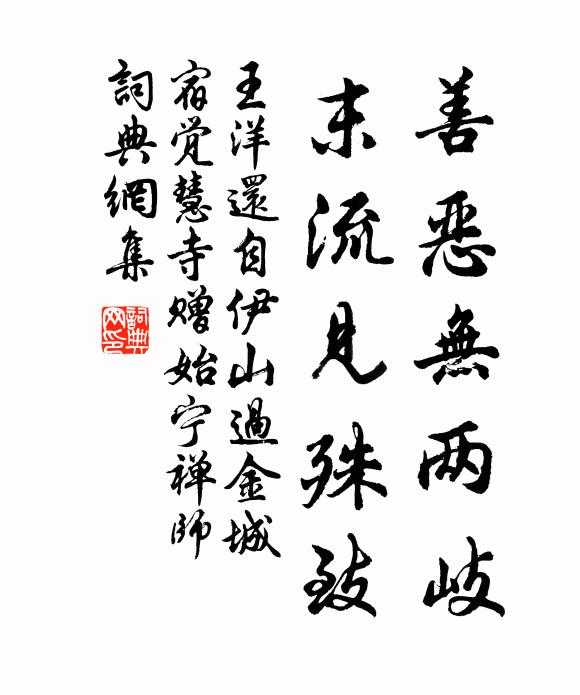 善惡無两岐
末流見殊致
王洋還自伊山過金城
宿觉慧寺赠始宁禅師
詞典網集
詞典网印